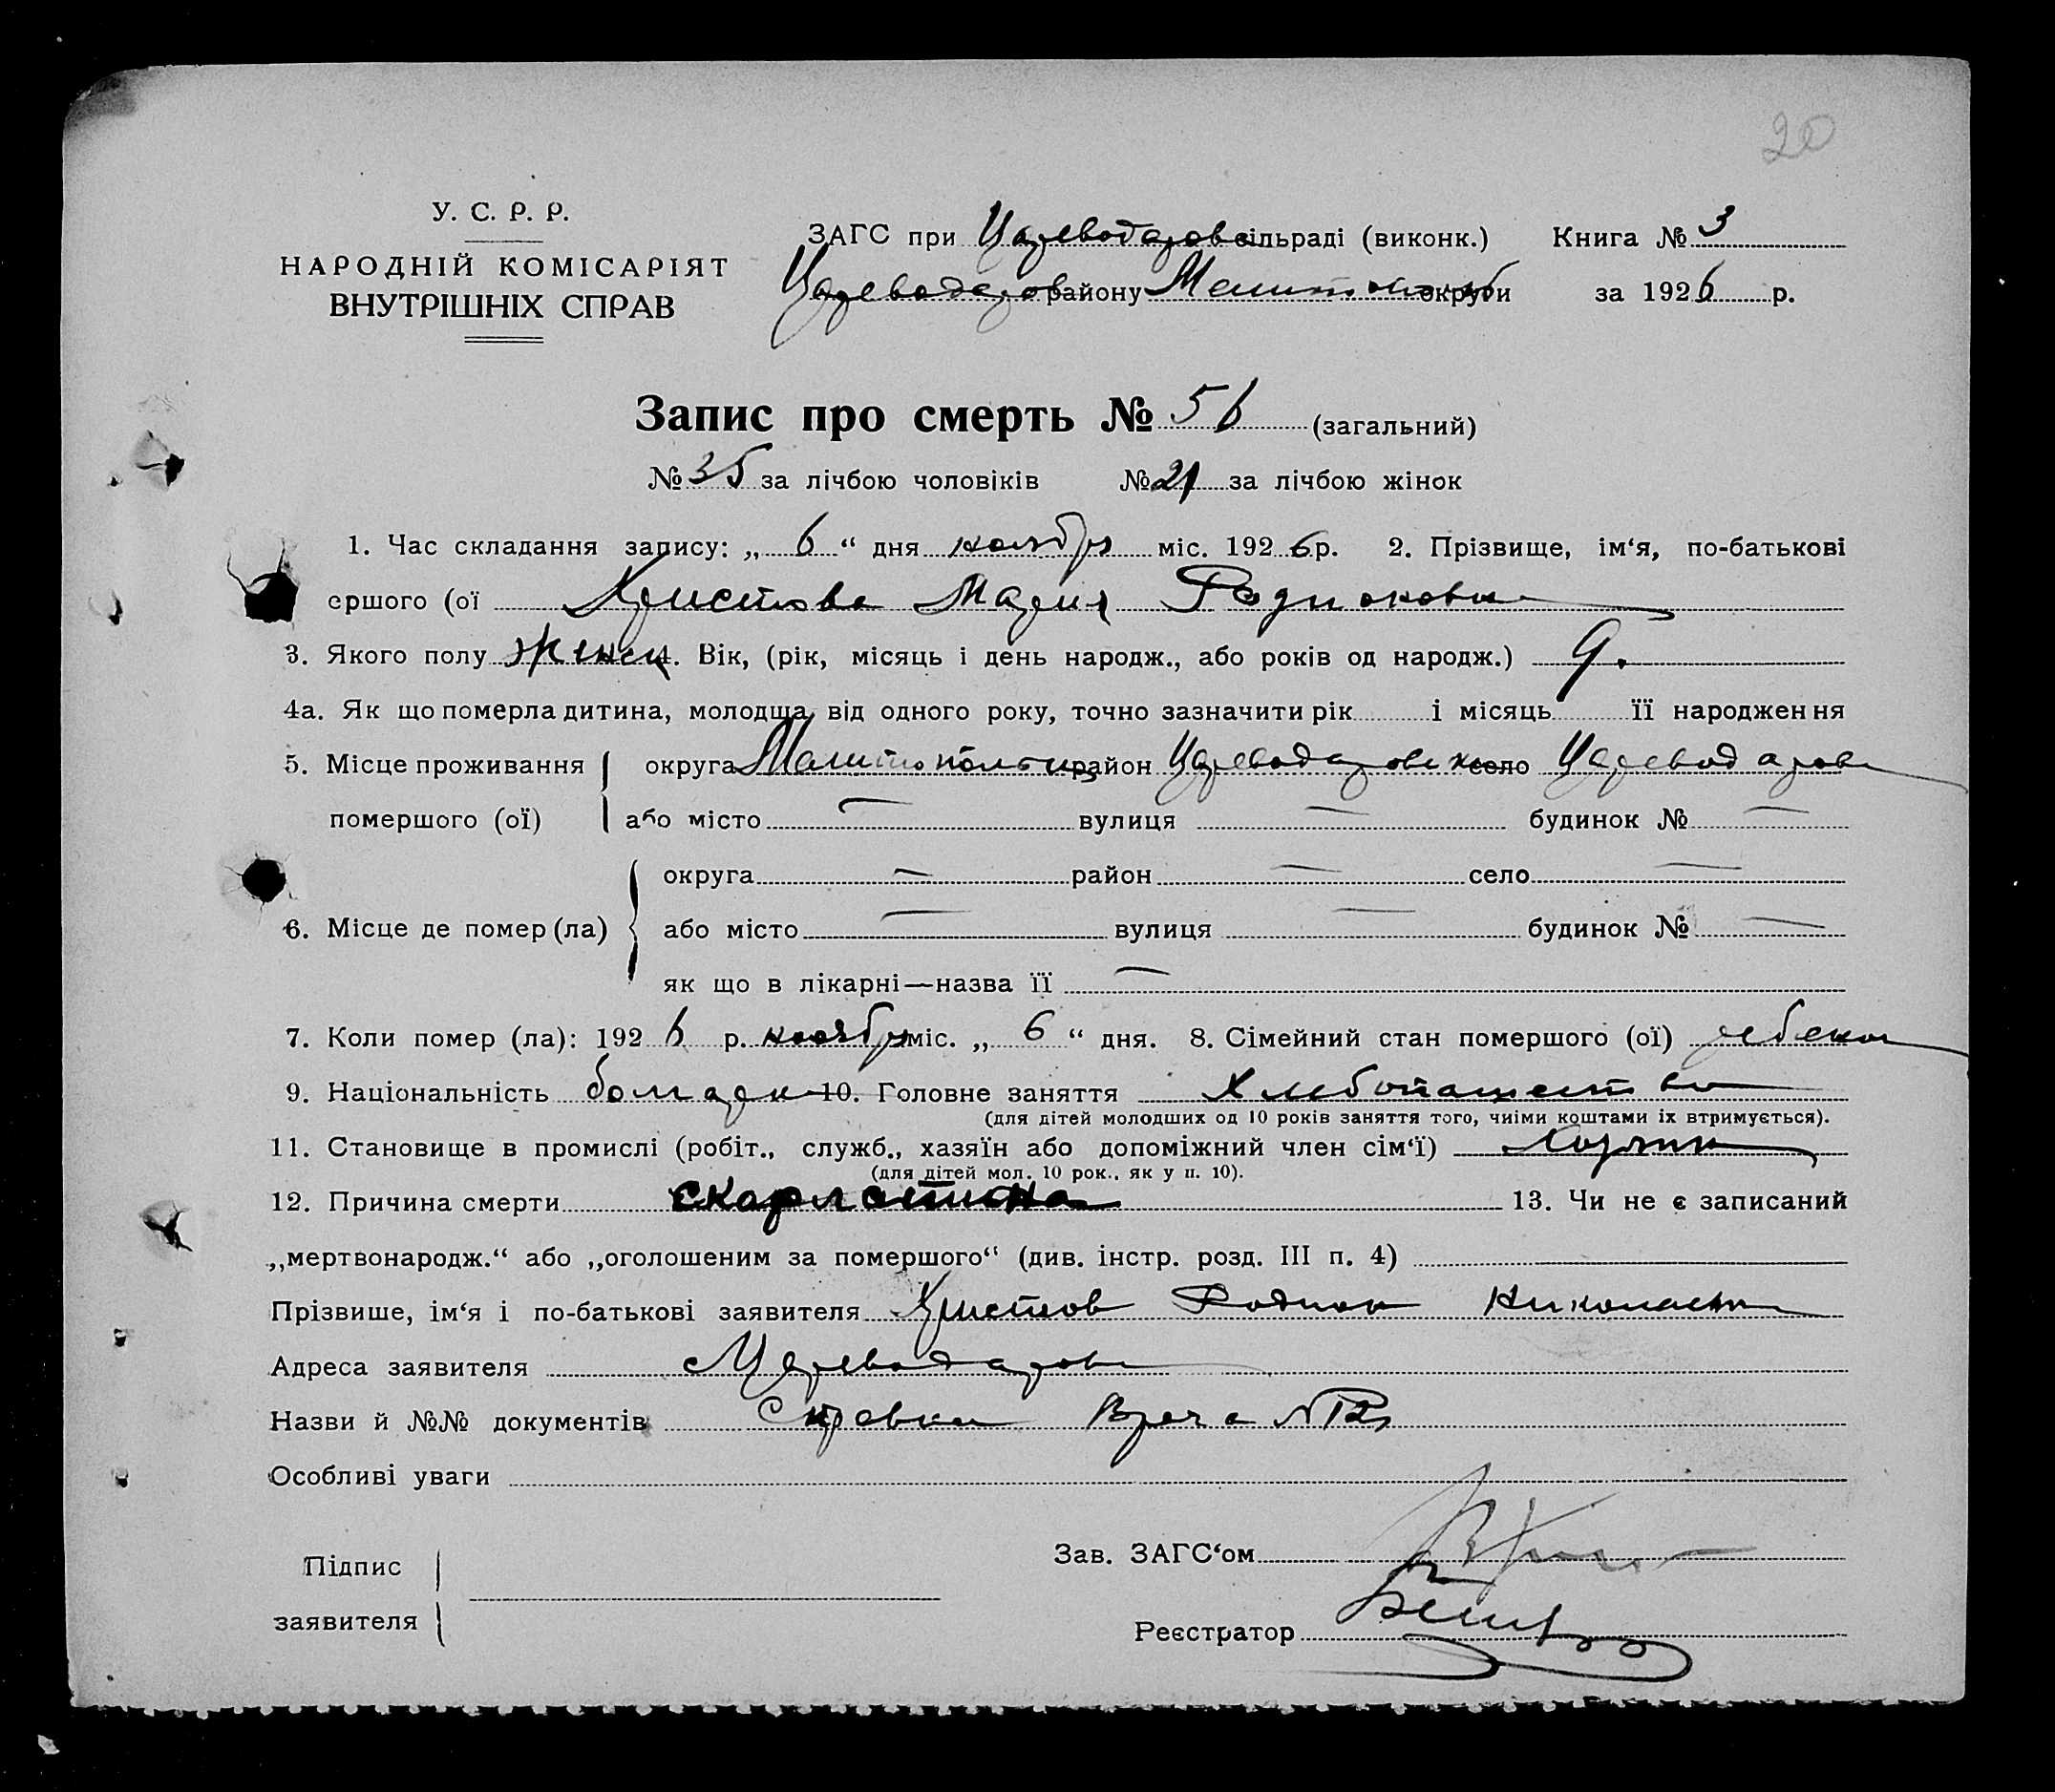 20
У. С. Р. Р.
НАРОДНІЙ КОМІСАРІЯТ
ВНУТРІШНІХ СПРАВ
ЗАГС при Цареводаров сільраді (виконк.) Книга № 3
Цареводаров району округи за 1926 р.
Запис про смерть № 56 (загальний)
№ 35 за лічбою чоловіків № 21 за лічбою жінок
1. Час складання запису: „ 6 “ дня ноября міс. 1926 р. 2. Прізвище, ім‘я, по-батькові
ершого (ої Христова Мария Родионовна
3. Якого полу женск 4. Вік, (рік, місяць і день народж., або років од народж.) 9.
4а. Як що померла дитина, молодша від одного року, точно зазначити рік і місяць її народження
5. Місце проживання округа Мелитопольск район Цареводаровск село Цареводаровк
помершого (ої) або місто — вулиця — будинок № —
округа — район — село —
6. Місце де помер (ла) або місто — вулиця — будинок № —
як що в лікарні—назва її —
7. Коли помер (ла): 1926 р. ноября міс. „ 6 “ дня. 8. Сімейний стан помершого (ої) ребенок
9. Національність болгарк 10. Головне заняття Хлебопашество
(для дітей молодших од 10 років заняття того, чиїми коштами їх втримується).
11. Становище в промислі (робіт., служб., хазяїн або допоміжний член сім‘ї)
(для дітей мол. 10 рок., як у п. 10).
12. Причина смерти скарлатина 13. Чи не є записаний
„мертвонародж.“ або „оголошеним за помершого“ (див. інстр. розд. III п. 4)
Прізвише, ім‘я і по-батькові заявителя Христов Родион Николаевич
Адреса заявителя Цареводаровк
Назви й №№ документів Справка Врача №
Особливі уваги
Зав. ЗАГС‘ом
Підпис
заявителя
Реєстратор